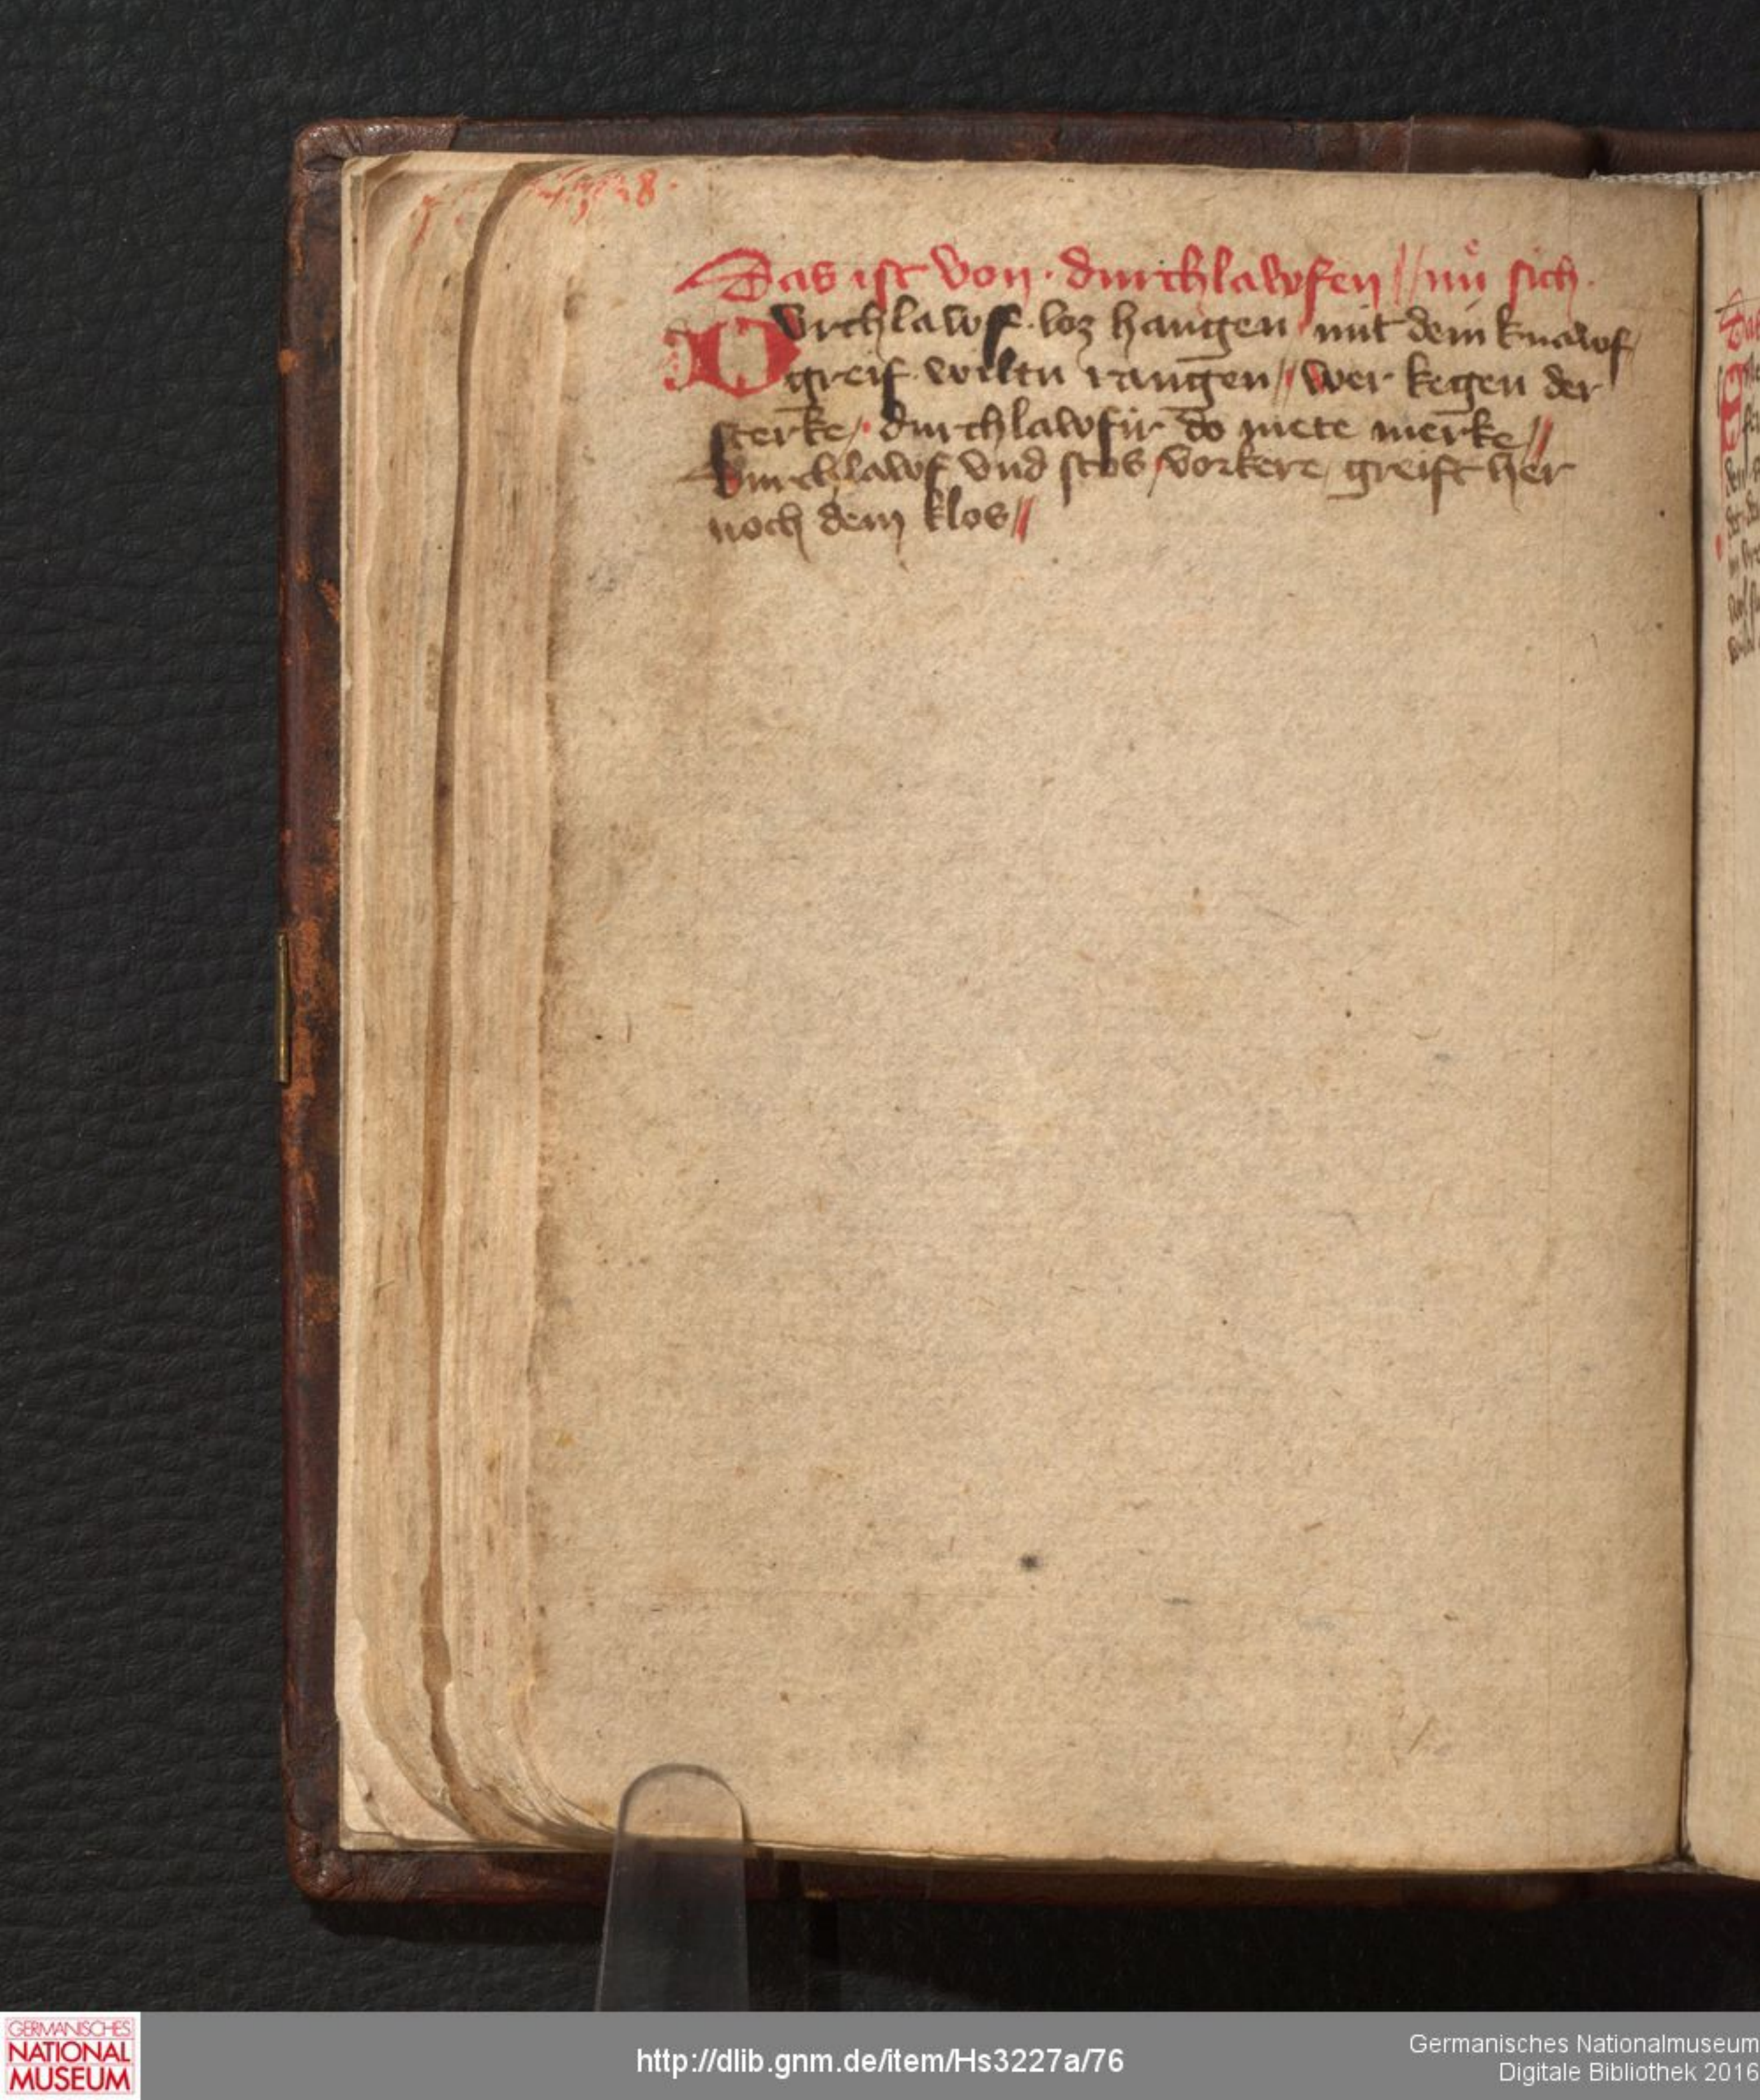 Das ist von · durchlawfen // nů sich ·
Durchlawf · loz hangen / mit dem knawf /
greif · wiltu rangen // wer kegen der
sterke / · durchlawf im do mete merke //
Durchlawf vnd stos / vorkere / greift her
noch dem klos //
GERMANISCHES
NATIONAL
MUSEUM
http://dlib.gnm.de/item/Hs3227a/76
Germanisches Nationalmuseum
Digitale Bibliothek 2016